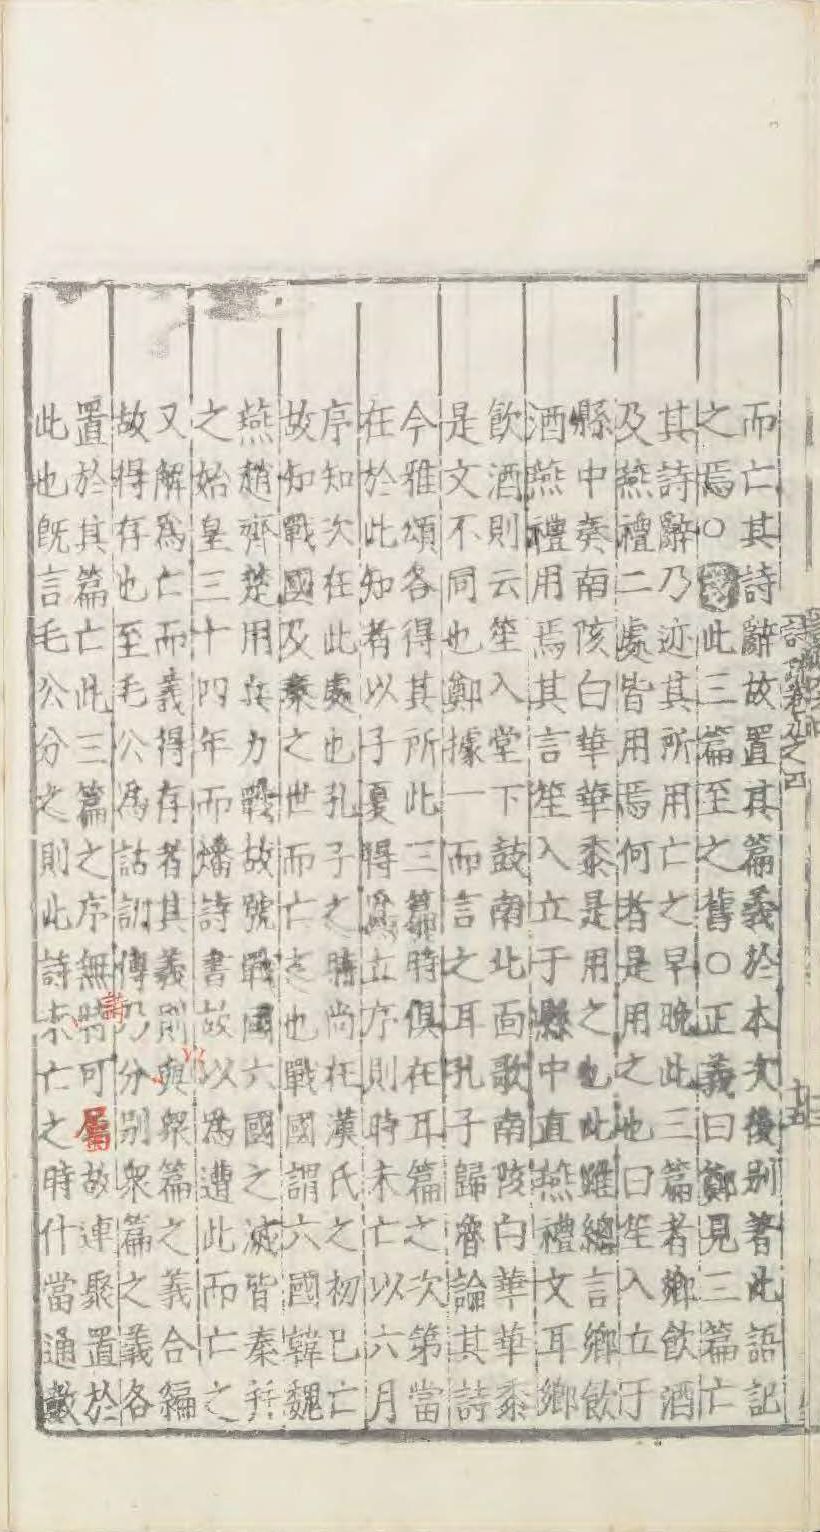 而亡其詩辭故置其篇義於本次後别著此語記
之焉○疏此三篇至之舊○正義曰鄭見三篇亡
其詩辭乃迹其所用亡之早晚此三篇者鄉飲酒
及燕禮二處皆用焉何者是用之也曰笙入立于
縣中奏南陔白華華黍是用之也此雖總言鄉飲
酒燕禮用焉其言笙入立于縣中直燕禮文耳鄉
飲酒則云笙入堂下鼓南北面歌南陔白華華黍
是文不同也鄭據一而言之耳孔子歸魯論其詩
今雅頌各得其所此三篇時俱在耳篇之次第當
在於此知者以子夏得爲立序則時未亡以六月
序知次在此處也孔子之時尚在漢氏之初已亡
故知戰國及秦之世而亡之也戰國謂六國韓魏
燕趙齊楚用兵力戰故號戰國六國之滅皆秦并
之始皇三十四年而燔詩書故以爲遭此而亡之
又解爲亡而義得存者其義則與衆篇之義合編
故得存也至毛公爲詁訓傳乃分别衆篇之義各
置於其篇亡此三篇之序無詩可屬故連聚置於
此也既言毛公分之則此詩未亡之時什當通數